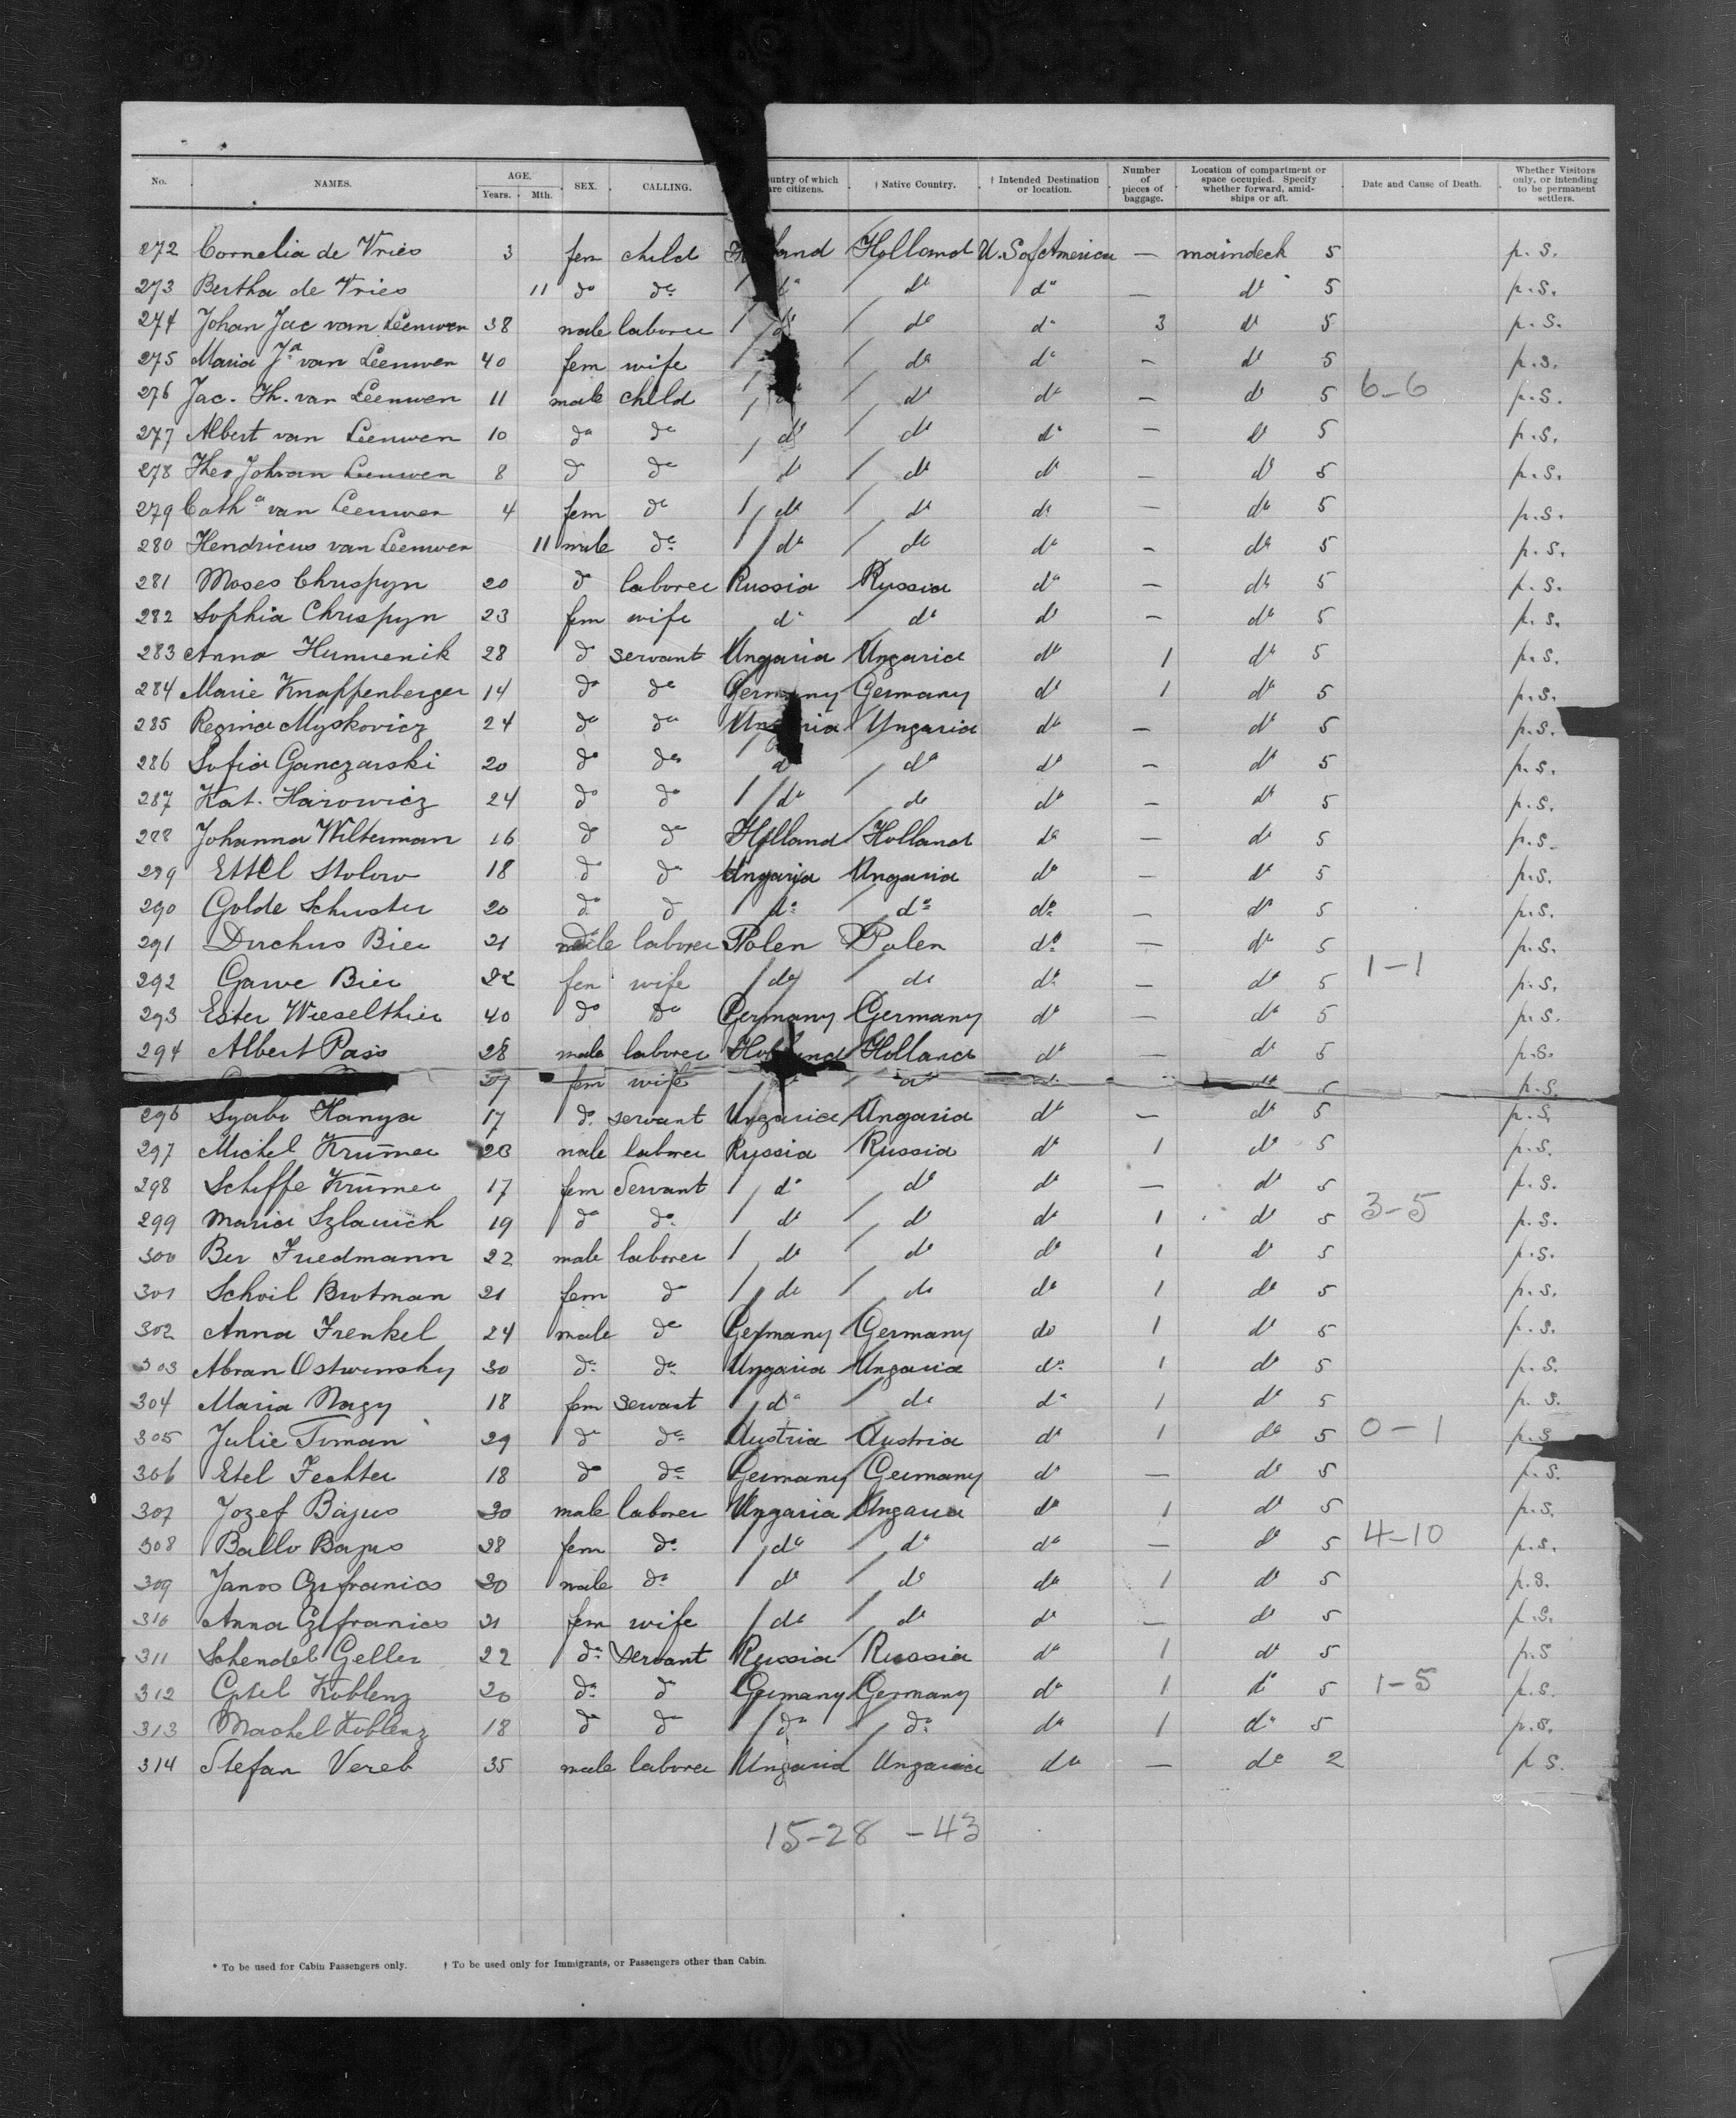 No. NAMES. AGE. Years. Mth. SEX. CALLING. ountry of which are citizens. † Native Country. † Intended Destination or location. Number of pieces of baggage. Location of compartment or space occupied. Specify whether forward, amidships or aft. Date and Cause of Death. Whether Visitors only, or intending to be permanent settlers.
272 Cornelia de Vries 3 fem child Holland U. S. of America — maindeck 5 p. s.
273 Bertha de Vries 11 do do do do do — do 5 p. s.
274 Johan Jac van Leeuwen 38 male laborer do do do 3 do 5 p. s.
275 Maria Ja van Leeuwen 40 fem wife do do — do 5 p. s.
276 Jac. Th. van Leeuwen 11 male child do do — do 5 6-6 p. s.
277 Albert van Leeuwen 10 do do do do do — do 5 p. s.
278 Theo Joh van Leeuwen 8 do do do do do — do 5 p. s.
279 Catha van Leeuwen 4 fem do do do do — do 5 p. s.
280 Hendricus van Leeuwen 11 male do do do do — do 5 p. s.
281 Moses Chrispyn 20 do laborer Russia Russia do — do 5 p. s.
282 Sophia Chrispyn 23 fem wife do do do — do 5 p. s.
283 Anna 28 do servant Ungaria Ungaria do 1 do 5 p. s.
284 Marie Knappenberger 14 do do Germany Germany do 1 do 5 p. s.
285 Regina Myskovicz 24 do do Ungaria Ungaria do — do 5 p. s.
286 Sofia Ganczarski 20 do do do do do — do 5 p. s.
287 Kat. Harowicz 24 do do do do do — do 5 p. s.
288 Johanna Wilterman 16 do do Holland Holland do — do 5 p. s.
289 Ettel Stolow 18 do do Ungaria Ungaria do — do 5 p. s.
290 Golde Schuster 20 do do do do do — do 5 p. s.
291 Bier 21 male laborer Polen Polen do — do 5 p. s.
292 Gawe Bier 22 fem wife do do do — do 5 1-1 p. s.
293 Ester Wieselthier 40 do do Germany Germany do — do 5 p. s.
294 Albert Pass 28 male laborer Holland Holland do — do 5 p. s.
27 fem wife do 5 p. s.
296 Kanya 17 do servant Ungaria Ungaria do — do 5 p. s.
297 Michel Krümer 20 male laborer Russia Russia do 1 do 5 p. s.
298 Scheffe Krümer 17 fem Servant do do do — do 5 p. s.
299 Maria Szlauich 19 do do do do do 1 do 5 3-5 p. s.
300 Ber Friedmann 22 male laborer do do do 1 do 5 p. s.
301 Schoil Brotman 21 fem do do do do 1 do 5 p. s.
302 Anna Frenkel 24 male do Germany Germany do 1 do 5 p. s.
303 Abran Ostwinsky 30 do do Ungaria Ungaria do 1 do 5 p. s.
304 Maria Nagy 18 fem servant do do do 1 do 5 p. s.
305 Julie Toman 29 do do Austria Austria do 1 do 5 0-1 p. s
306 Etel Fechter 18 do do Germany Germany do — do 5 p. s.
307 Jozef Bajus 30 male laborer Ungaria Ungaria do 1 do 5 p. s.
308 Bajus 28 fem do do do do — do 5 4-10 p. s.
309 Janos Czifranics 30 male do do do do 1 do 5 p. s.
310 Anna Czifranics 21 fem wife do do do — do 5 p. s.
311 Schendel Geller 22 do servant Russia Russia do 1 do 5 p. s
312 Koblenz 20 do do Germany Germany do 1 do 5 1-5 p. s.
313 Machel Koblenz 18 do do do do do 1 do 5 p. s.
314 Stefan Vereb 35 male laborer Ungaria Ungaria do — do 2 p s.
15-28 -43
* To be used for Cabin Passengers only. † To be used only for Immigrants, or Passengers other than Cabin.